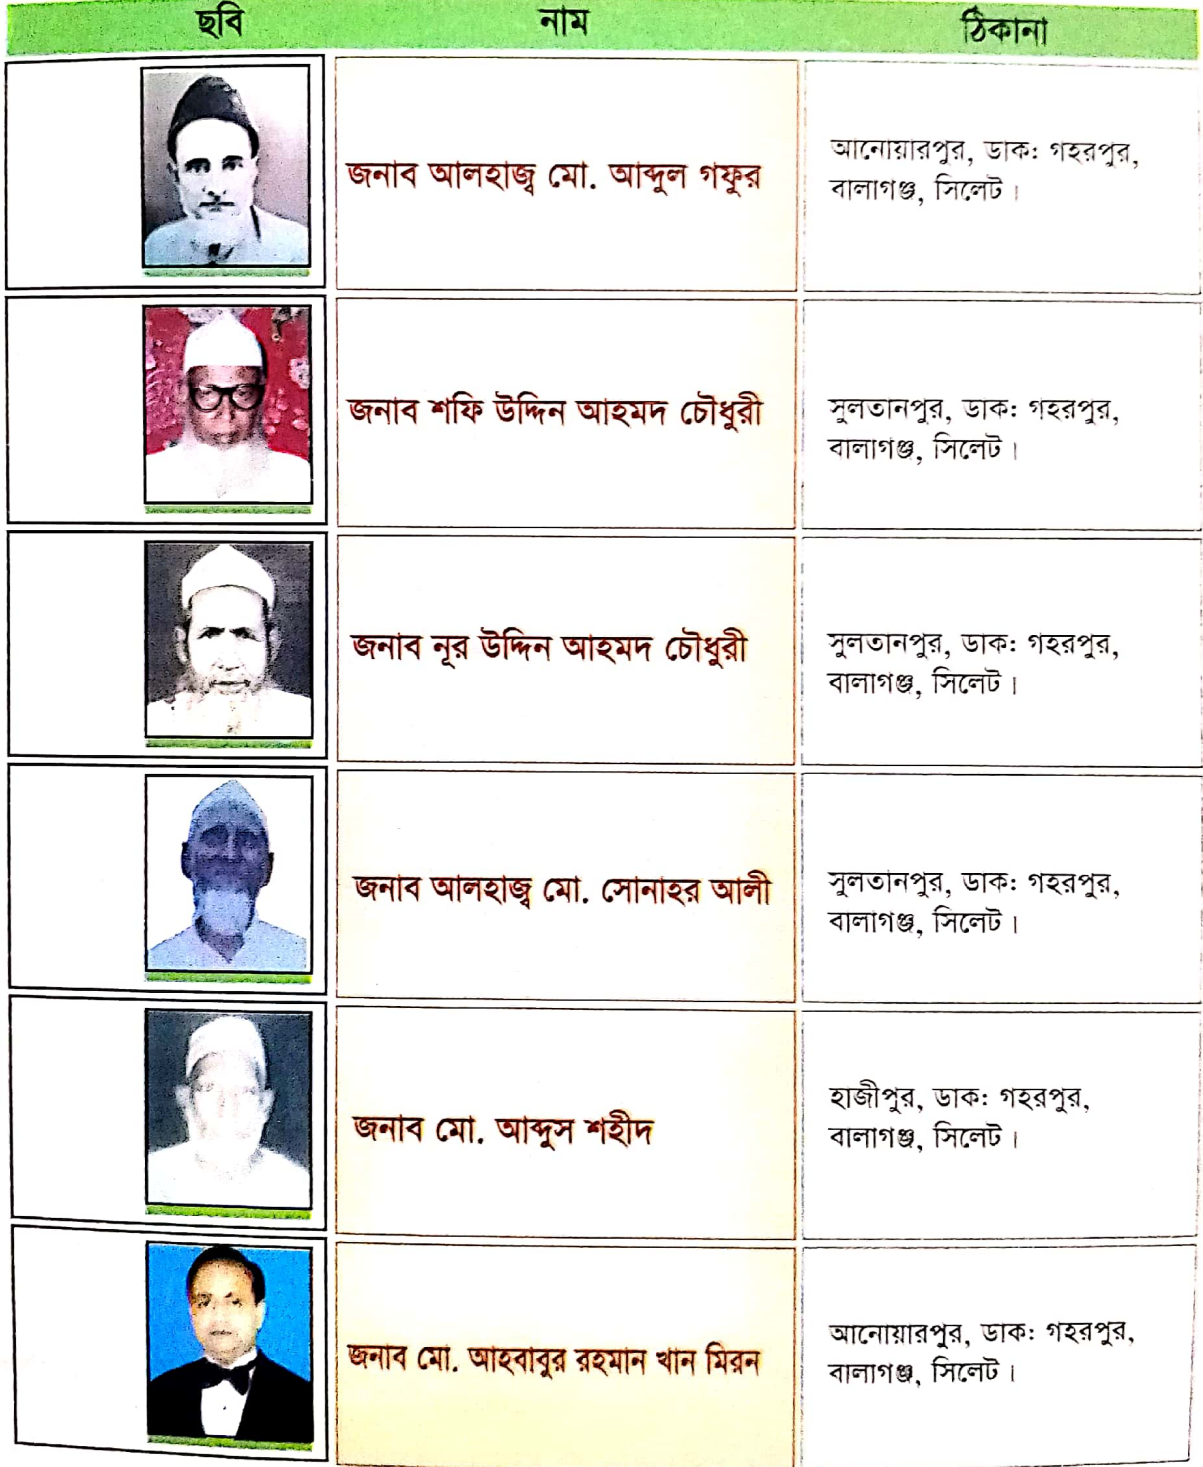 ছবি নাম ঠিকানা
জনাব আলহাজ্ব মো. আব্দুল গফুর
আনোয়ারপুর, ডাক: গহরপুর,
বালাগঞ্জ, সিলেট।
জনাব শফি উদ্দিন আহমদ চৌধুরী
সুলতানপুর, ডাক: গহরপুর,
বালাগঞ্জ, সিলেট।
জনাব নূর উদ্দিন আহমদ চৌধুরী
সুলতানপুর, ডাক: গহরপুর,
বালাগঞ্জ, সিলেট।
জনাব আলহাজ্ব মো. সোনাহর আলী
সুলতানপুর, ডাক: গহরপুর,
বালাগঞ্জ, সিলেট।
জনাব মো. আব্দুস শহীদ
হাজীপুর, ডাক: গহরপুর,
বালাগঞ্জ, সিলেট।
জনাব মো. আহবাবুর রহমান খান মিরন
আনোয়ারপুর, ডাক: গহরপুর,
বালাগঞ্জ, সিলেট।